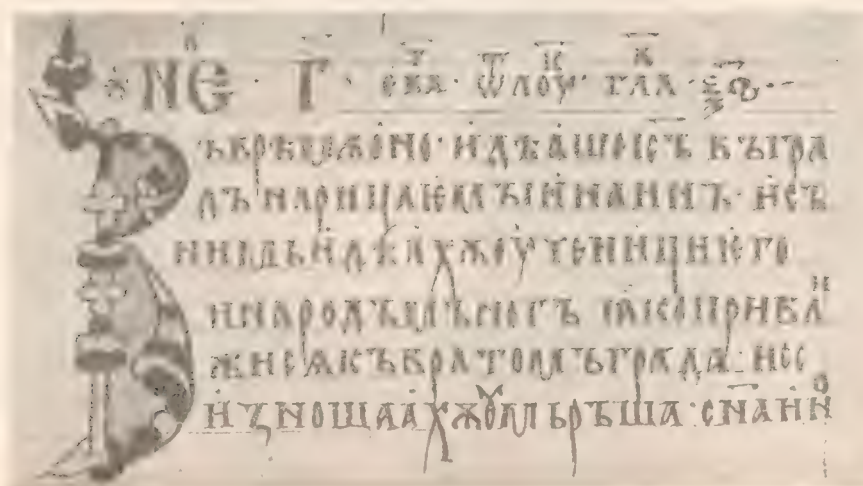 НЕ · Г · еѵа · ѿ лоу · гла ·
ъ врѣмѧ оно · идѣаше іс҃ въ гра
дъ нарицаѥмъи наинъ · и съ
нимь идѣахѫ оученици ѥго
и народъ мъногъ ꙗко прибли
жисѧ къ вратомъ града · и се
изношаахѫ оумьръша · сн҃а ино